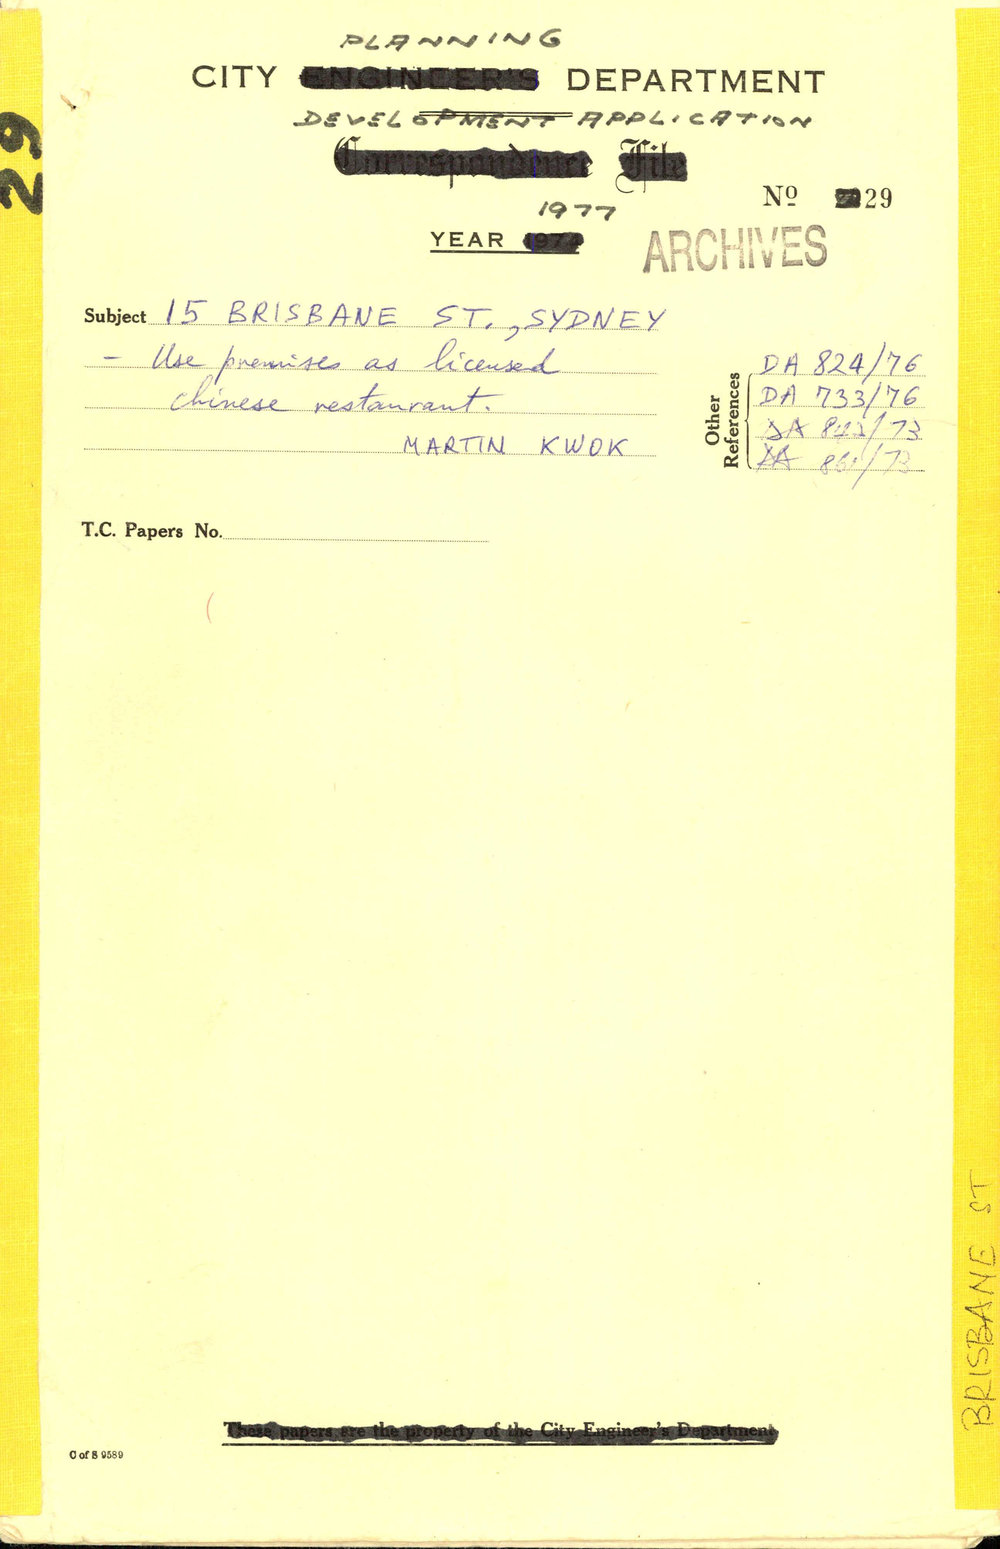 PLANNING
CITY ENGINEER'S DEPARTMENT
DEVELOPMENT APPLICATION
Correspondence File
29
Nº 29
1977
YEAR
ARCHIVES
Subject 15 BRISBANE ST., SYDNEY
- Use premises as licensed
chinese restaurant.
MARTIN KWOK
Other References
DA 824/76
DA 733/76
DA /73
DA /73
T.C. Papers No.
BRISBANE ST
These papers are the property of the City Engineer's Department
C of S 9589